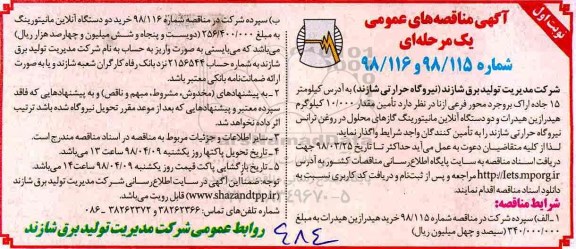 نوبت اول
آگهی مناقصه‌های عمومی
یک مرحله‌ای
شماره ۹۸/۱۱۵ و ۹۸/۱۱۶
شرکت مدیریت تولید برق شازند (نیروگاه حرارتی شازند) به آدرس کیلومتر
۱۵ جاده اراک بروجرد محور فرعی ازنا در نظر دارد تأمین مقدار ۱۰/۰۰۰ کیلوگرم
هیدرازین هیدرات و دو دستگاه آنلاین مانیتورینگ گازهای محلول در روغن ترانس
نیروگاه حرارتی شازند را به تأمین کنندگان واجد شرایط واگذار نماید.
لذا از کلیه متقاضیان دعوت به عمل می‌آید حداکثر تا تاریخ ۹۸/۰۳/۲۵ جهت
دریافت اسناد مناقصه به سایت پایگاه اطلاع رسانی مناقصات کشور به آدرس
http://iets.mporg.ir مراجعه و پس از ثبت‌نام و دریافت کد کاربری نسبت به
دانلود اسناد مناقصه اقدام نمایند.
شرایط مناقصه:
۱ـ الف) سپرده شرکت در مناقصه شماره ۹۸/۱۱۵ خرید هیدرازین هیدرات به مبلغ
۳۴۰/۰۰۰/۰۰۰ (سیصد و چهل میلیون ریال)
ب) سپرده شرکت در مناقصه شماره ۹۸/۱۱۶ خرید دو دستگاه آنلاین مانیتورینگ
به مبلغ ۲۵۶/۴۰۰/۰۰۰ (دویست و پنجاه و شش میلیون و چهارصد هزار ریال)
می‌باشد که می‌بایستی به صورت واریز به حساب به نام شرکت مدیریت تولید برق
شازند به شماره حساب ۲۱۵۶۵۴۴ نزد بانک رفاه کارگران شعبه شازند و یا به صورت
ارائه ضمانت‌نامه بانکی معتبر باشد.
۲ـ به پیشنهادهای (مخدوش، مشروط، مبهم و ناقص) و به پیشنهادهایی که فاقد
سپرده معتبر و پیشنهادهایی که بعد از موعد مقرر تحویل نیروگاه شده باشد ترتیب
اثر داده نخواهد شد.
۳ـ سایر اطلاعات و جزئیات مربوط به مناقصه در اسناد مناقصه مندرج است.
۴ـ تاریخ تحویل پاکتها روز یکشنبه ۹۸/۰۴/۰۹ ساعت ۱۳ می‌باشد.
۵ـ تاریخ بازگشایی پاکت قیمت روز یکشنبه ۹۸/۰۴/۰۹ ساعت ۱۴ می‌باشد.
توجه: ضمناً این آگهی در سایت اطلاع‌رسانی شرکت مدیریت تولید برق شازند
(www.shazandtpp.ir) قابل رویت می‌باشد.
شماره تلفن‌های تماس: ۳۸۲۶۲۳۶۶ و ۳۸۲۶۲۳۷۲ ـ ۰۸۶
روابط عمومی شرکت مدیریت تولید برق شازند